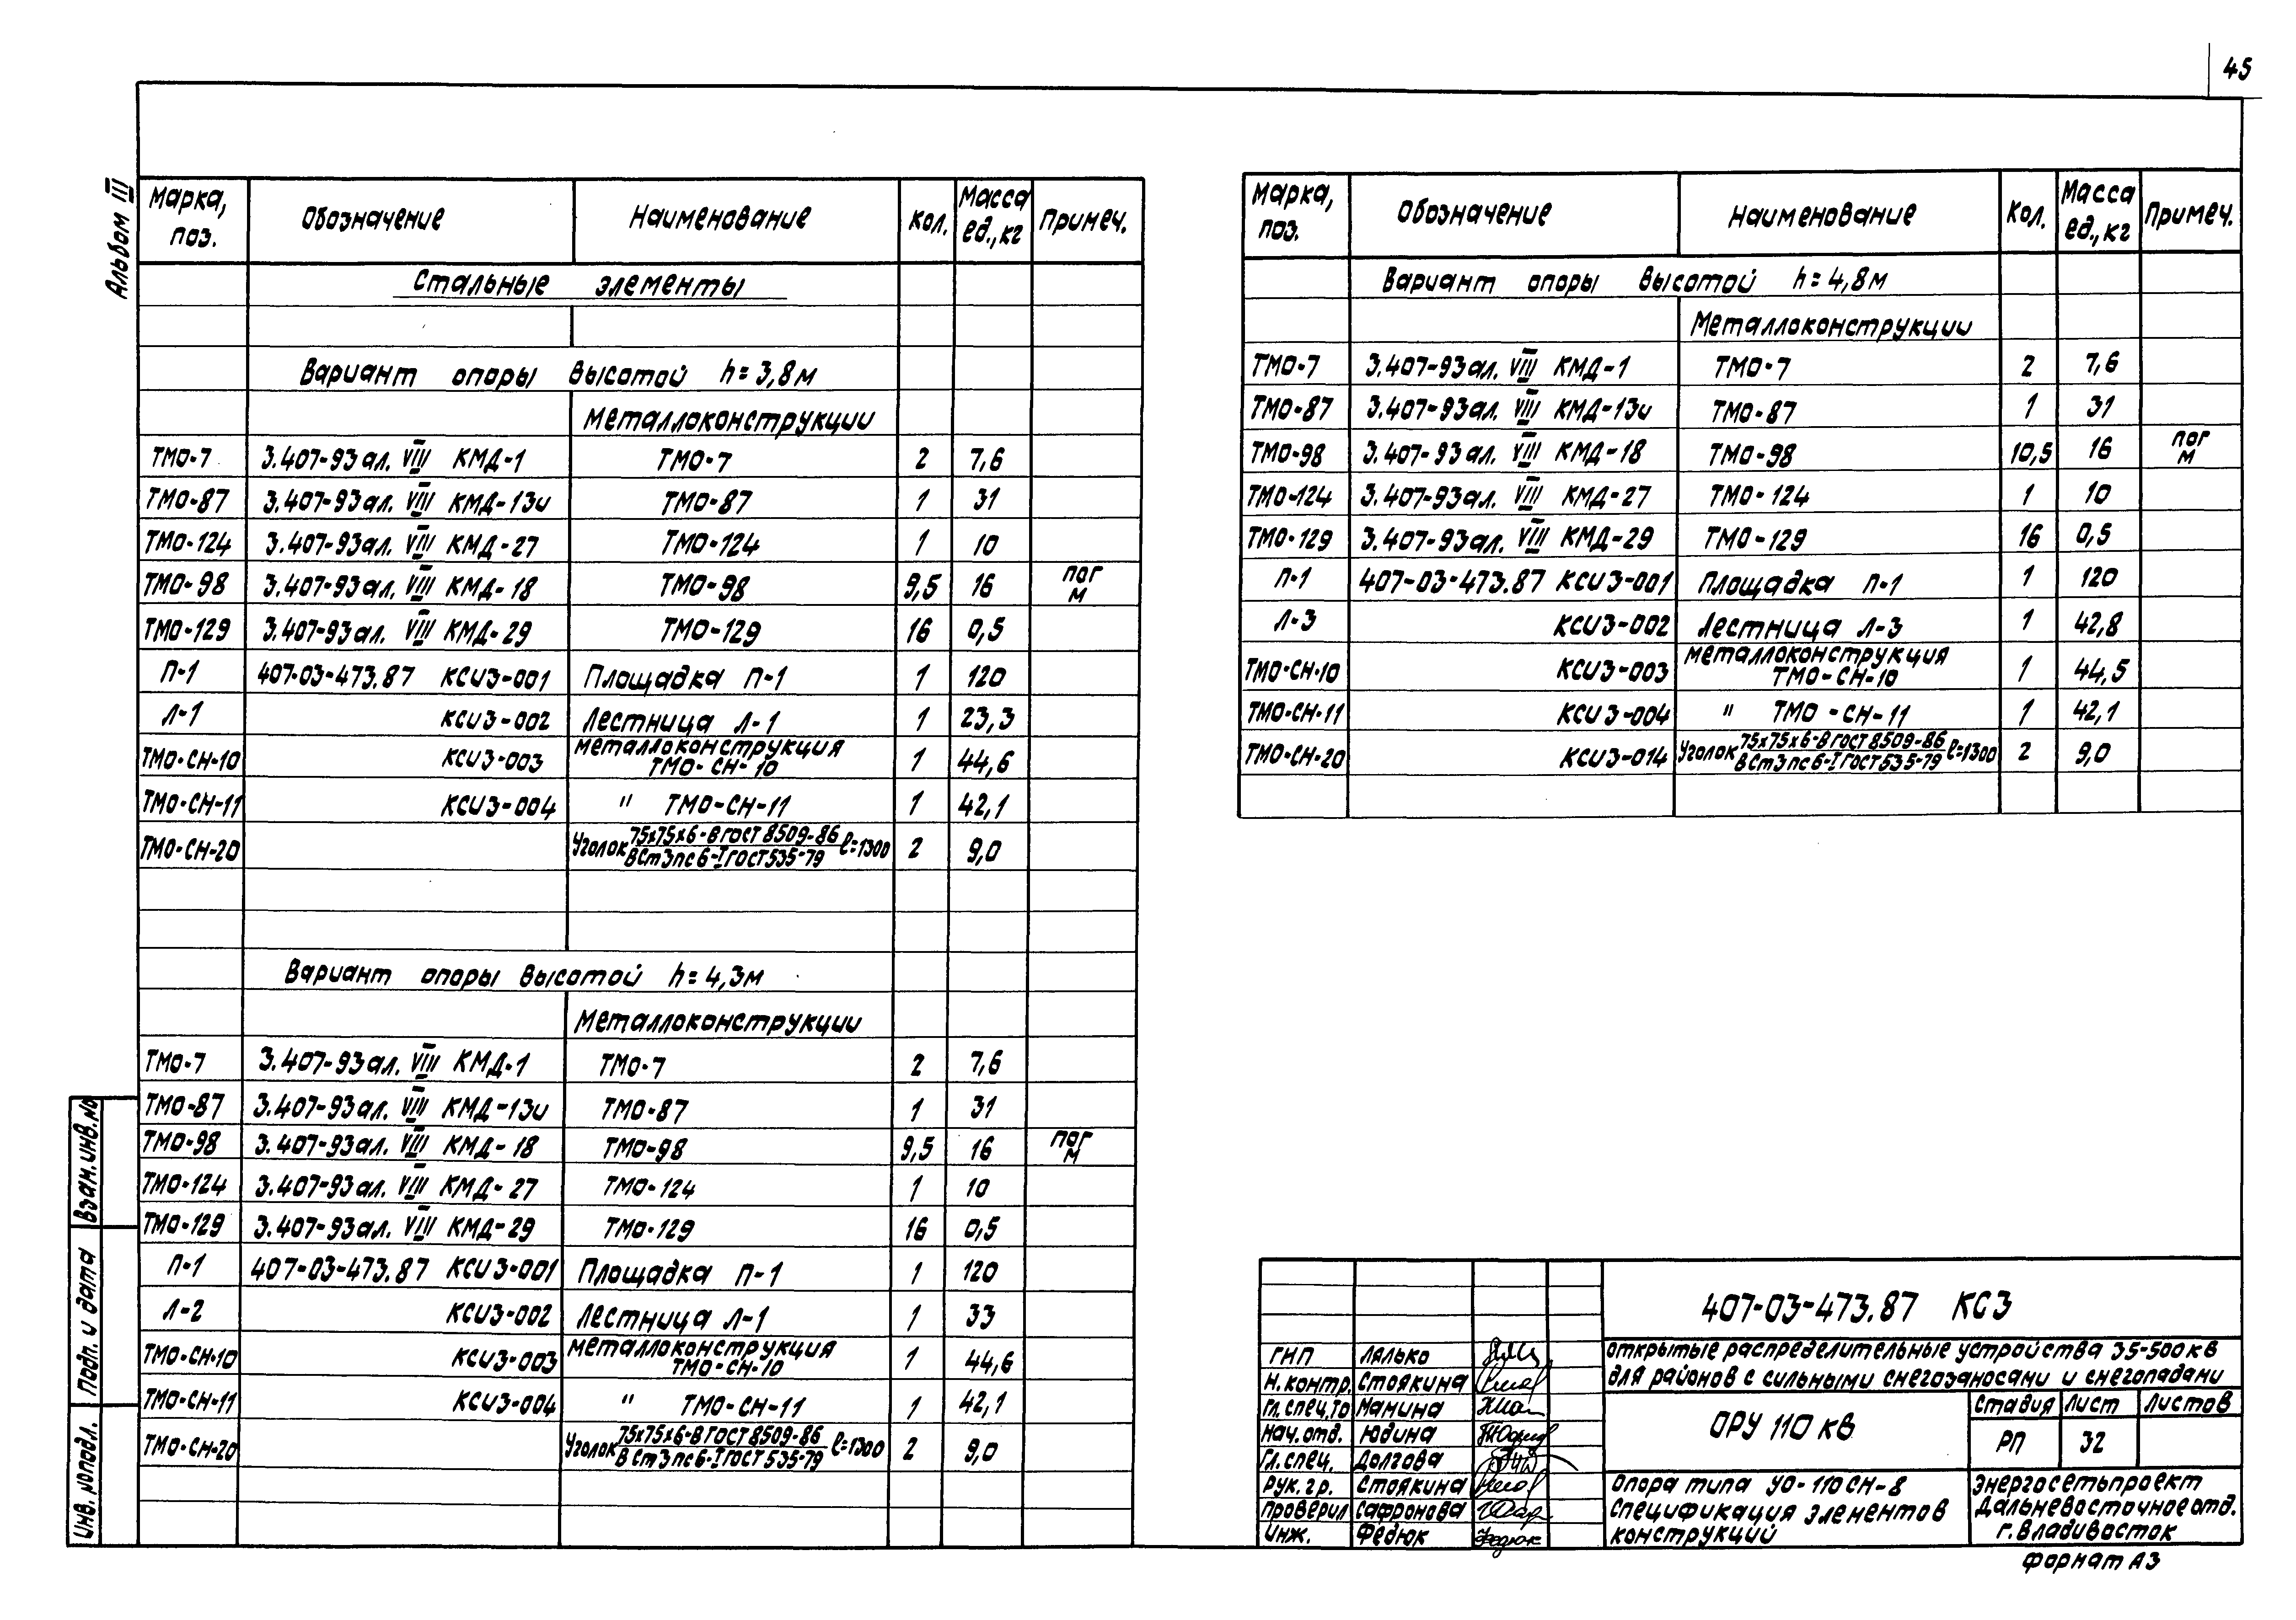 45
Альбом III
Марка, поз. Обозначение Наименование Кол. Масса ед., кг Примеч.
Стальные элементы
Вариант опоры высотой h=3,8м
Металлоконструкции
ТМО-7 3.407-93 ал. VIII КМД-1 ТМО-7 2 7,6
ТМО-87 3.407-93 ал. VIII КМД-13и ТМО-87 1 31
ТМО-124 3.407-93 ал. VIII КМД-27 ТМО-124 1 10
ТМО-98 3.407-93 ал. VIII КМД-18 ТМО-98 9,5 16 пог м
ТМО-129 3.407-93 ал. VIII КМД-29 ТМО-129 16 0,5
П-1 407-03-473.87 КСИ3-001 Площадка П-1 1 120
Л-1 КСИ3-002 Лестница Л-1 1 23,3
ТМО-СН-10 КСИ3-003 Металлоконструкция ТМО-СН-10 1 44,6
ТМО-СН-11 КСИ3-004 " ТМО-СН-11 1 42,1
ТМО-СН-20 Уголок 75х75х6-В ГОСТ 8509-86 / ВСт3пс6-I ГОСТ 535-79 ℓ=1300 2 9,0
Вариант опоры высотой h=4,3м
Металлоконструкции
ТМО-7 3.407-93 ал. VIII КМД-1 ТМО-7 2 7,6
ТМО-87 3.407-93 ал. VIII КМД-13и ТМО-87 1 31
ТМО-98 3.407-93 ал. VIII КМД-18 ТМО-98 9,5 16 пог м
ТМО-124 3.407-93 ал. VIII КМД-27 ТМО-124 1 10
ТМО-129 3.407-93 ал. VIII КМД-29 ТМО-129 16 0,5
П-1 407-03-473.87 КСИ3-001 Площадка П-1 1 120
Л-2 КСИ3-002 Лестница Л-1 1 33
ТМО-СН-10 КСИ3-003 Металлоконструкция ТМО-СН-10 1 44,6
ТМО-СН-11 КСИ3-004 " ТМО-СН-11 1 42,1
ТМО-СН-20 Уголок 75х75х6-В ГОСТ 8509-86 / ВСт3пс6-I ГОСТ 535-79 ℓ=1300 2 9,0
Марка, поз. Обозначение Наименование Кол. Масса ед., кг Примеч.
Вариант опоры высотой h=4,8м
Металлоконструкции
ТМО-7 3.407-93 ал. VIII КМД-1 ТМО-7 2 7,6
ТМО-87 3.407-93 ал. VIII КМД-13и ТМО-87 1 31
ТМО-98 3.407-93 ал. VIII КМД-18 ТМО-98 10,5 16 пог м
ТМО-124 3.407-93 ал. VIII КМД-27 ТМО-124 1 10
ТМО-129 3.407-93 ал. VIII КМД-29 ТМО-129 16 0,5
П-1 407-03-473.87 КСИ3-001 Площадка П-1 1 120
Л-3 КСИ3-002 Лестница Л-3 1 42,8
ТМО-СН-10 КСИ3-003 Металлоконструкция ТМО-СН-10 1 44,5
ТМО-СН-11 КСИ3-004 " ТМО-СН-11 1 42,1
ТМО-СН-20 КСИ3-014 Уголок 75х75х6-В ГОСТ 8509-86 / ВСт3пс6-I ГОСТ 535-79 ℓ=1300 2 9,0
Взам. инв. №
Подп. и дата
Инв. № подл.
407-03-473.87 КС3
Открытые распределительные устройства 35-500 кв
для районов с сильными снегозаносами и снегопадами
ГИП Лялько
Н. контр. Стоякина
Гл. спец. ТО Мамина
Нач. отд. Юдина
Гл. спец. Долгова
Рук. гр. Стоякина
Проверил Сафронова
Инж. Федюк
ОРУ 110 кв
Стадия Лист Листов
РП 32
Опора типа УО-110СН-8
Спецификация элементов
конструкций
Энергосетьпроект
Дальневосточное отд.
г. Владивосток
Формат А3